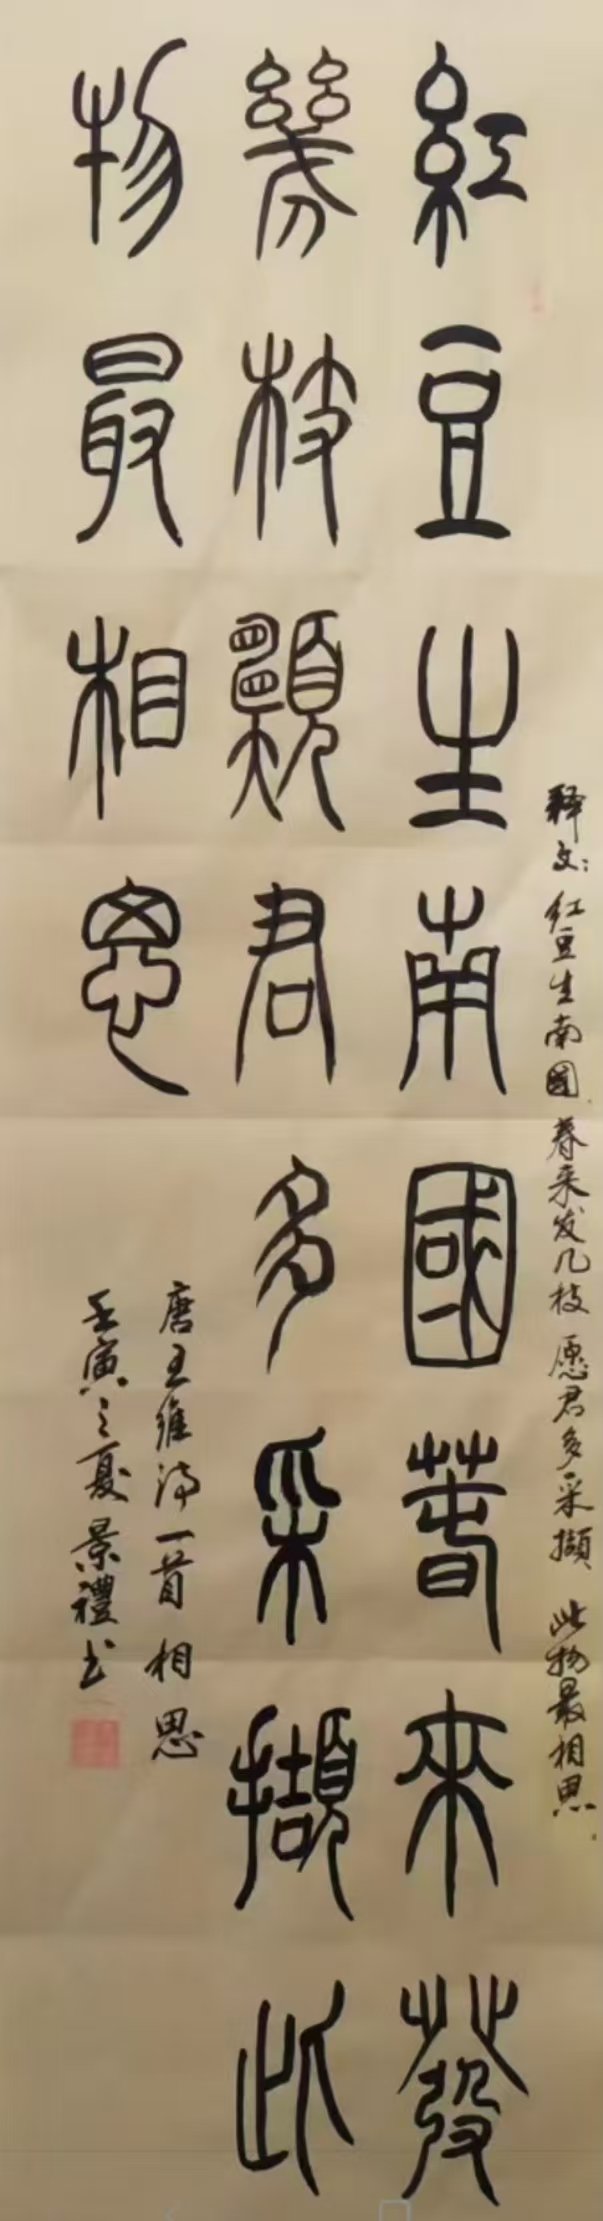 释文：红豆生南國 春来发几枝 愿君多采撷 此物最相思
紅豆生南國春來發
幾枝願君多采擷此
物最相思
唐王维诗一首相思
壬寅之夏景禮书